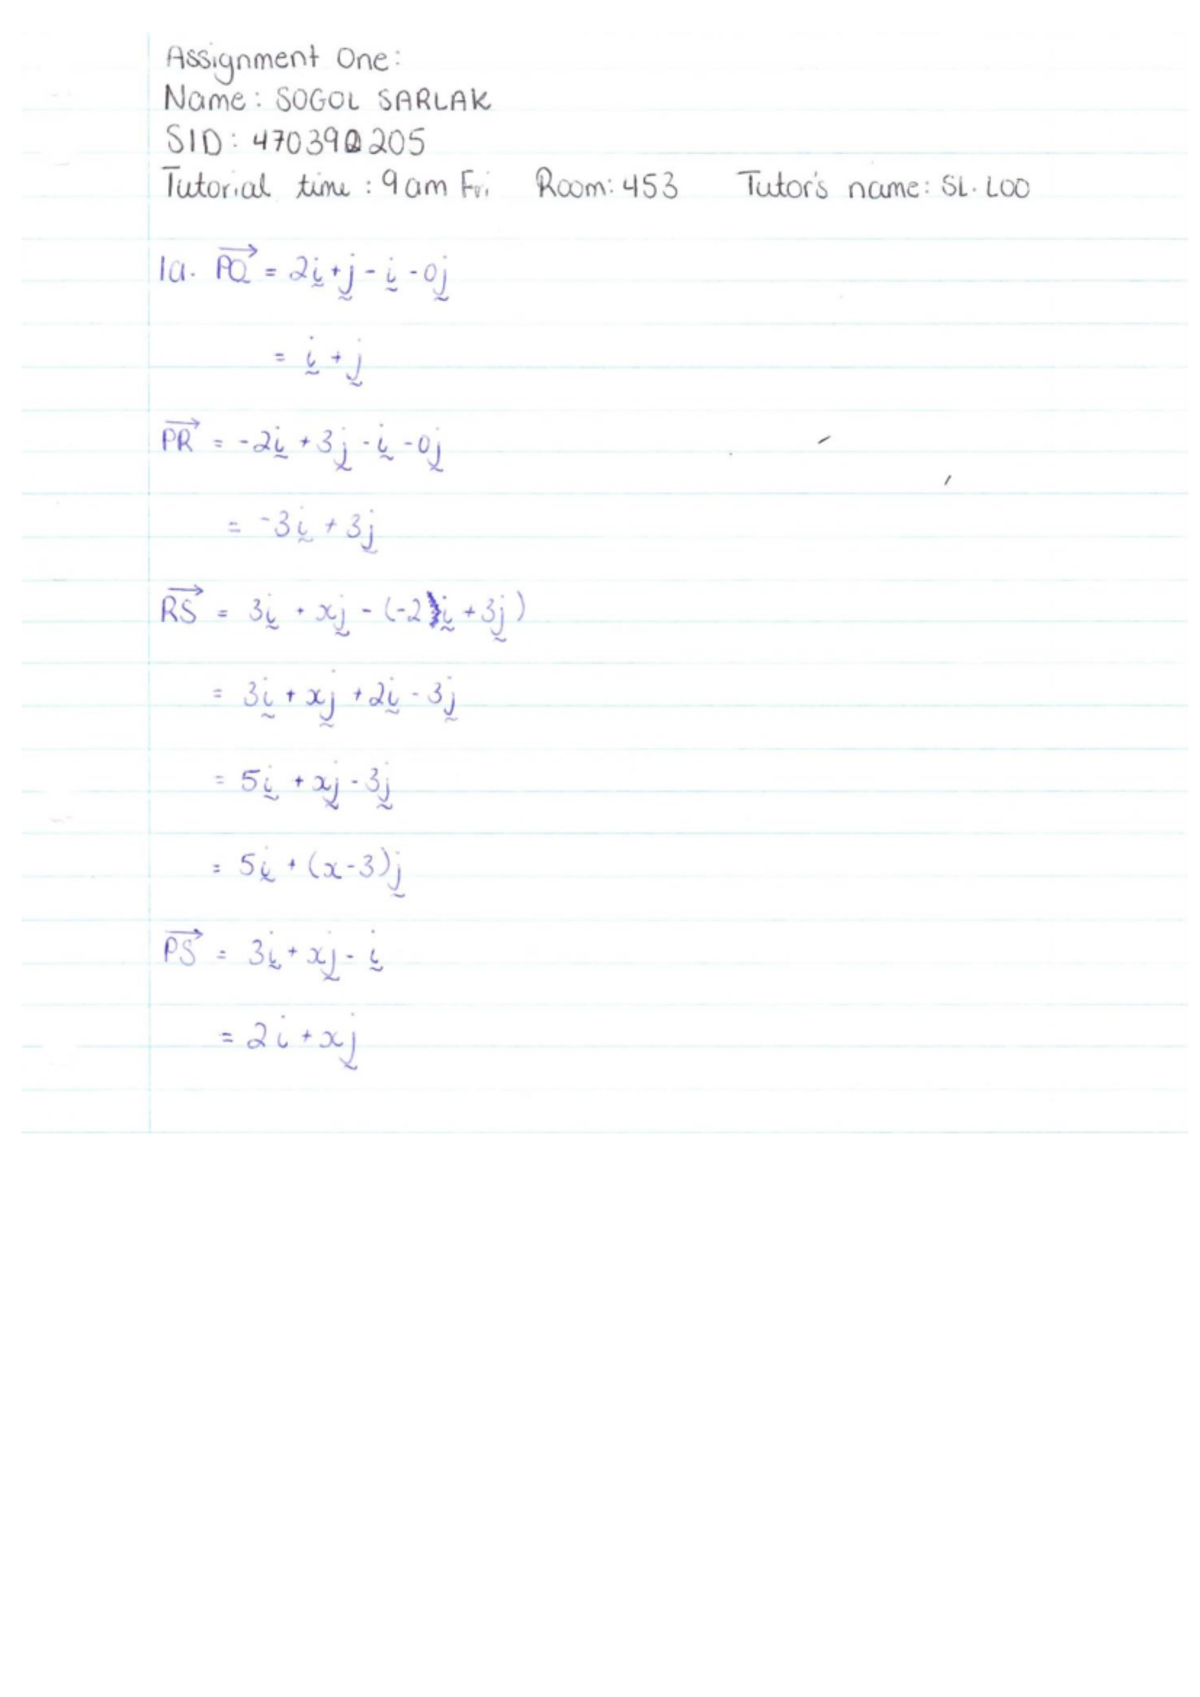 Assignment One:
Name: SOGOL SARLAK
SID: 470390205
Tutorial time: 9am Fri Room: 453 Tutor's name: SL. LOO
1a. PQ⃗ = 2ḭ + j̰ - ḭ - 0j̰
= ḭ + j̰
PR⃗ = -2ḭ + 3j̰ - ḭ - 0j̰
= -3ḭ + 3j̰
RS⃗ = 3ḭ + xj̰ - (-2ḭ + 3j̰)
= 3ḭ + xj̰ + 2ḭ - 3j̰
= 5ḭ + xj̰ - 3j̰
= 5ḭ + (x-3)j̰
PS⃗ = 3ḭ + xj̰ - ḭ
= 2i + xj̰